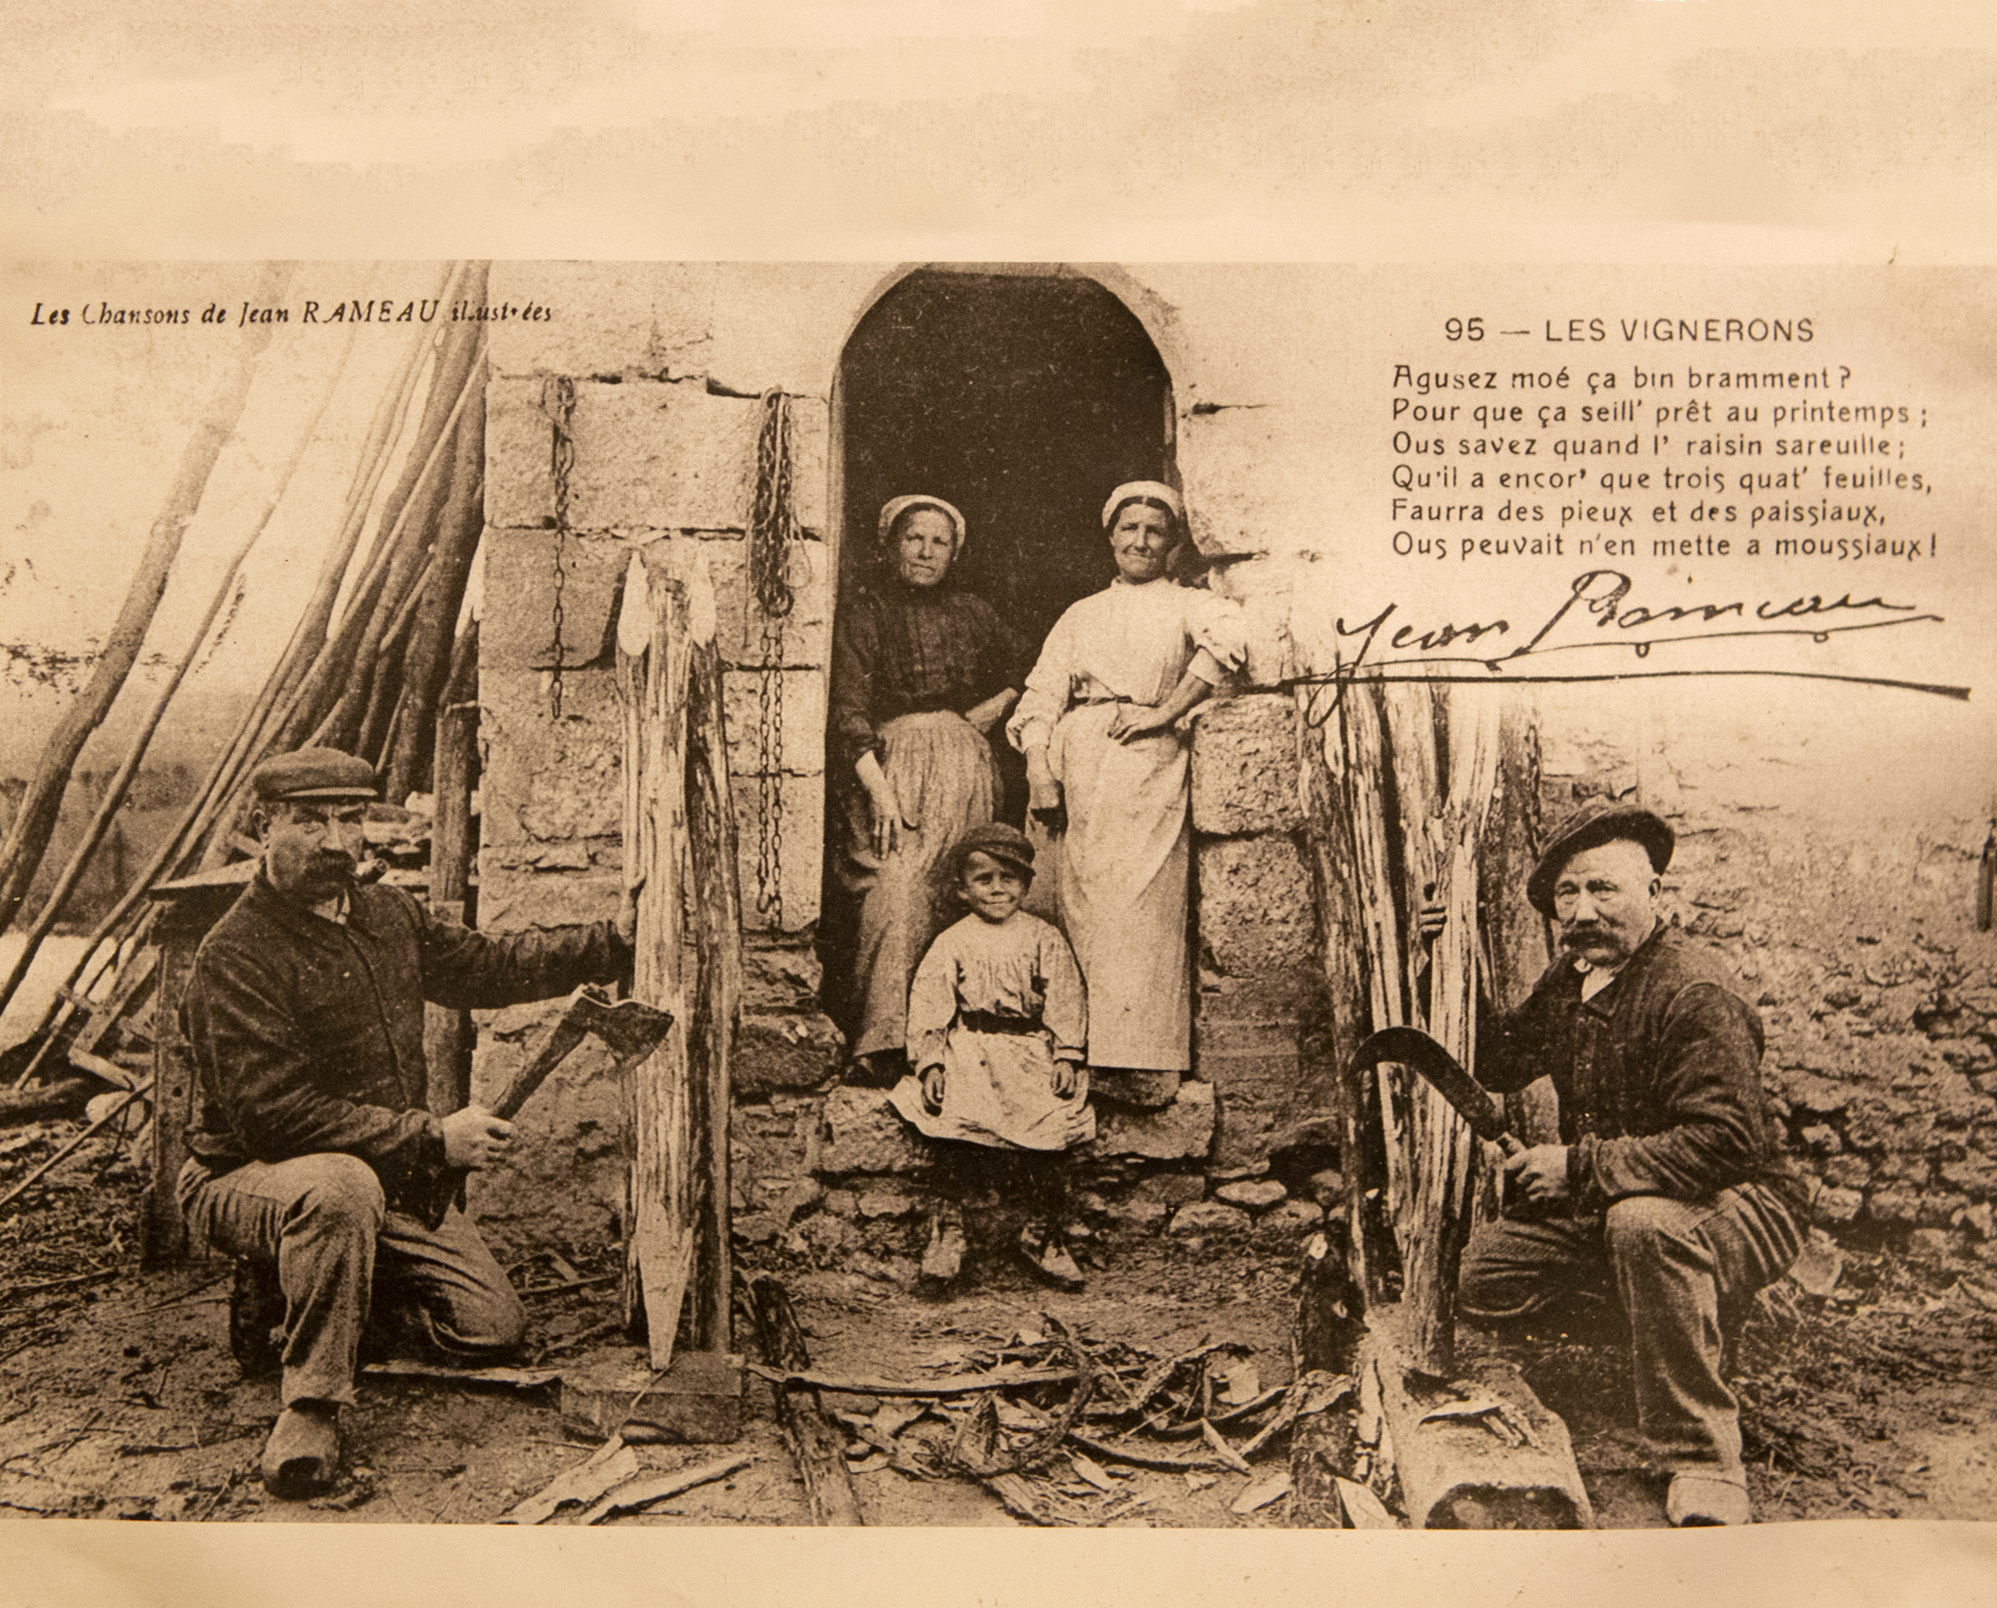 Les Chansons de Jean RAMEAU illustrées
95 — LES VIGNERONS
Agusez moé ça bin bramment ?
Pour que ça seill' prêt au printemps ;
Ous savez quand l' raisin sareuille ;
Qu'il a encor' que trois quat' feuilles,
Faurra des pieux et des paissiaux,
Ous peuvait n'en mette a moussiaux !
Jean Rameau